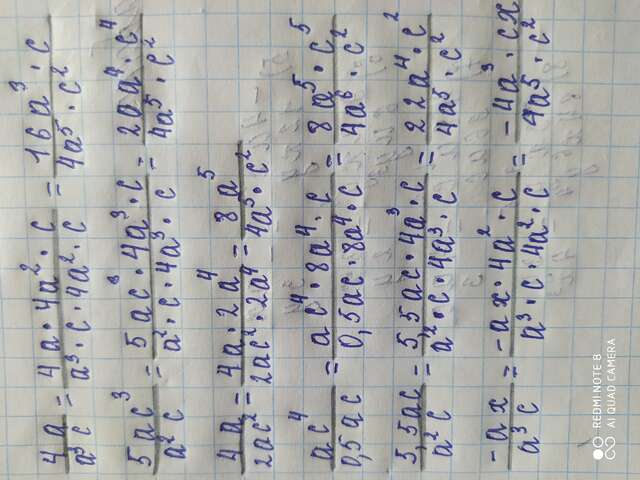 4a/a³c = 4a·4a²·c/a³·c·4a²·c = 16a³·c/4a⁵·c²
5ac³/a²c = 5ac·4a³·c/a²·c·4a³·c = 20a⁴·c⁴/4a⁵·c²
4a/2ac² = 4a·2a⁴/2ac²·2a⁴ = 8a⁵/4a⁵·c²
ac⁴/0,5ac = ac⁴·8a⁴·c/0,5ac·8a⁴·c = 8a⁵·c⁵/4a⁶·c²
5,5ac/a²c = 5,5ac·4a³·c/a²·c·4a³·c = 22a⁴·c²/4a⁵·c²
-ax/a³c = -ax·4a²·c/a³·c·4a²·c = -4a³·cx/4a⁵·c²
REDMI NOTE 8
AI QUAD CAMERA